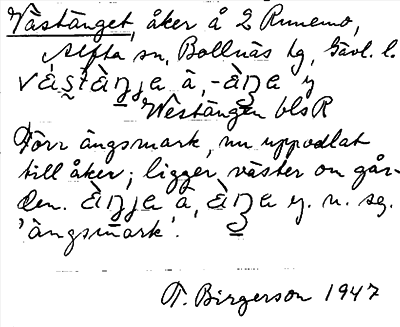 Västänget, åker å 2 Runemo,
Alfta sn, Bollnäs tg, Gävl. l.
Västängen blsR
Förr ängsmark, nu uppodlat
till åker; ligger väster om går-
den. y. n. sg.
'ängsmark'.
T. Birgerson 1947